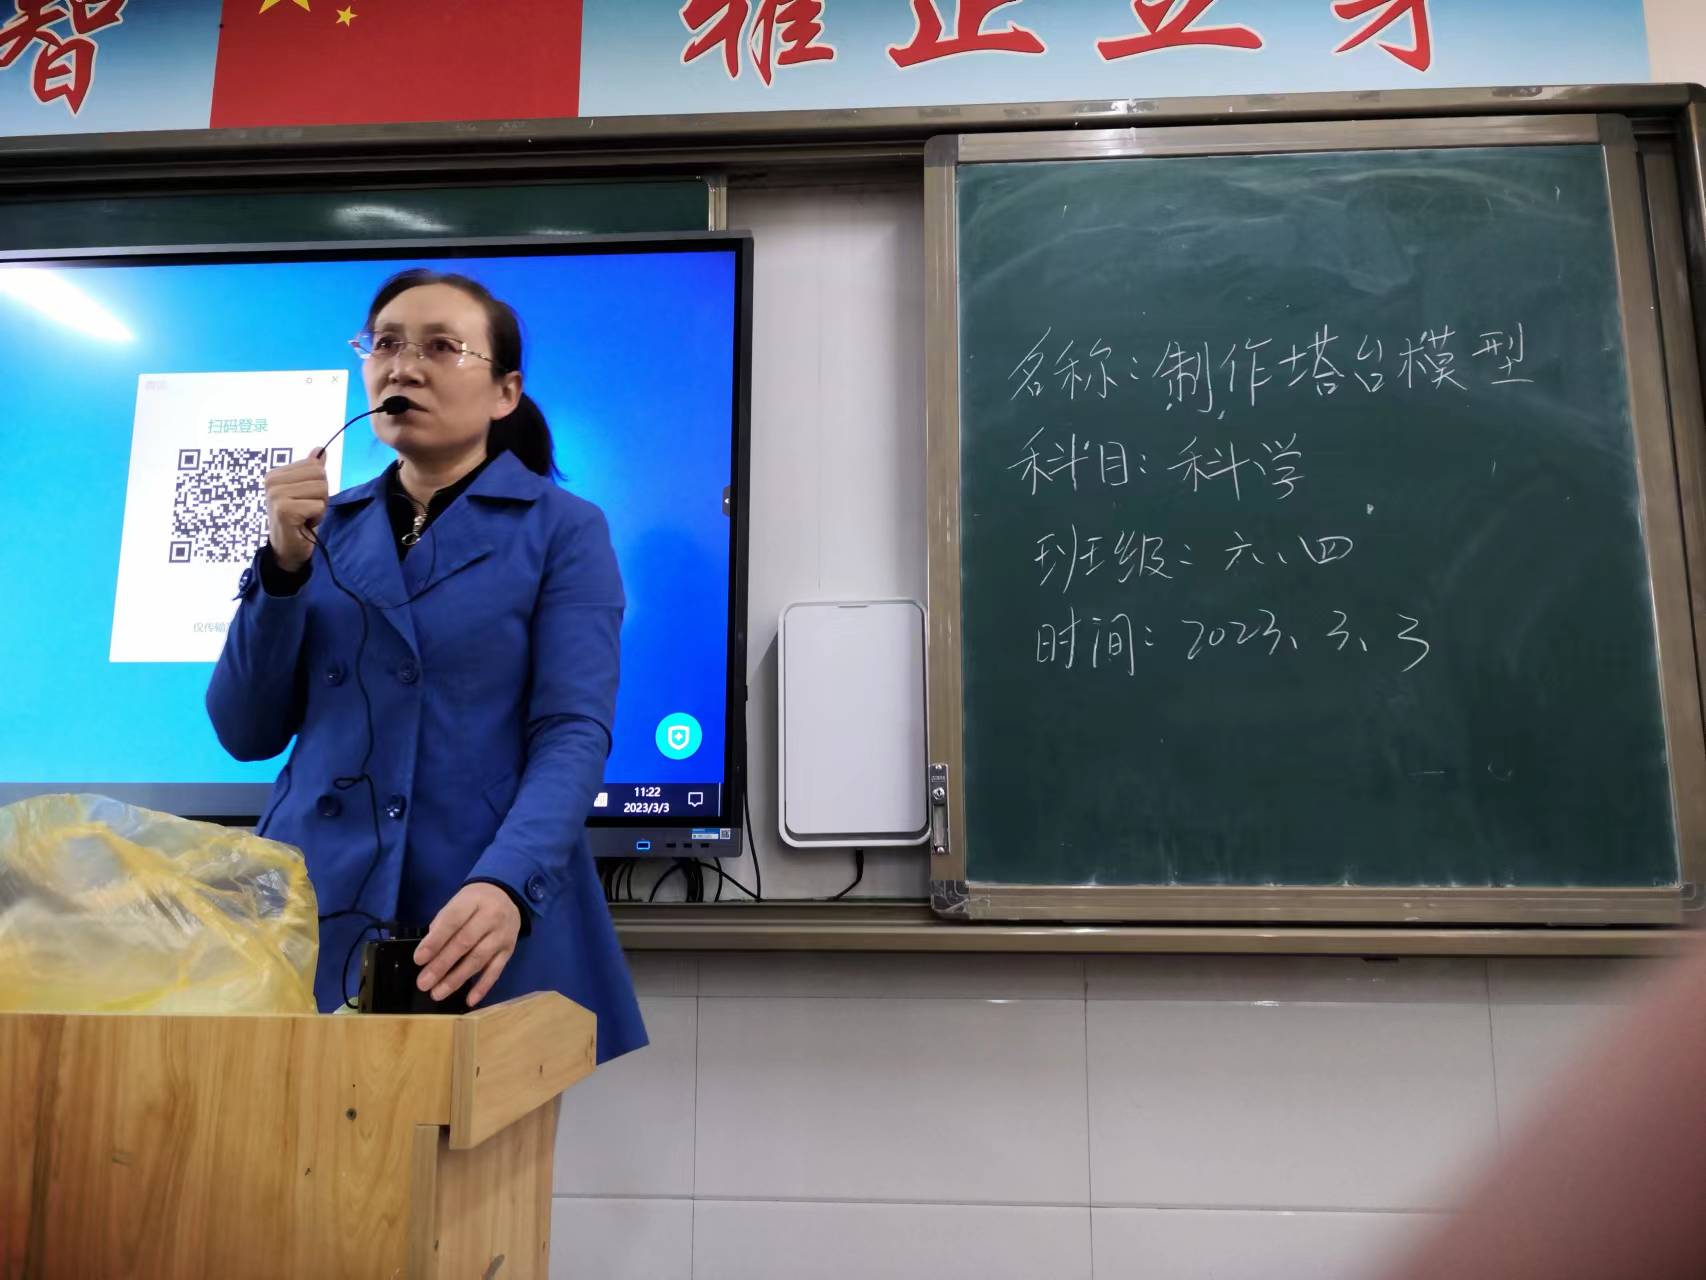 智 雅正立身
扫码登录
名称：制作塔台模型
科目：科学
班级：六、四
时间：2023、3、3
仅传输
11:22
2023/3/3